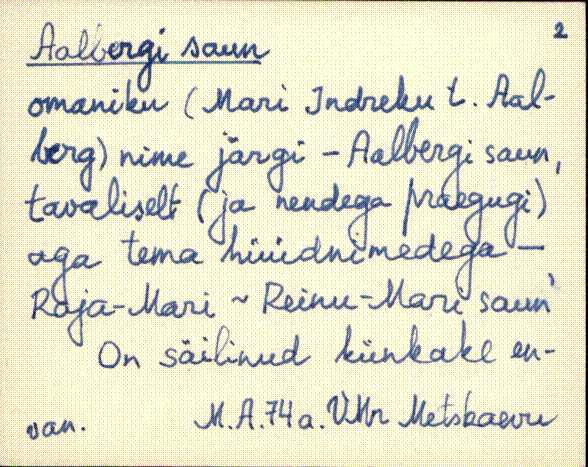 2
Aalbergi saun
omaniku (Mari Indreku t. Aal-
berg) nime järgi – Aalbergi saun,
tavaliselt (ja nendega praegugi)
aga tema hüüdnimedega –
Raja-Mari ~ Reinu-Mari saun
On säilinud künkake en-
van. M.A.74a. VMr Metskaevu